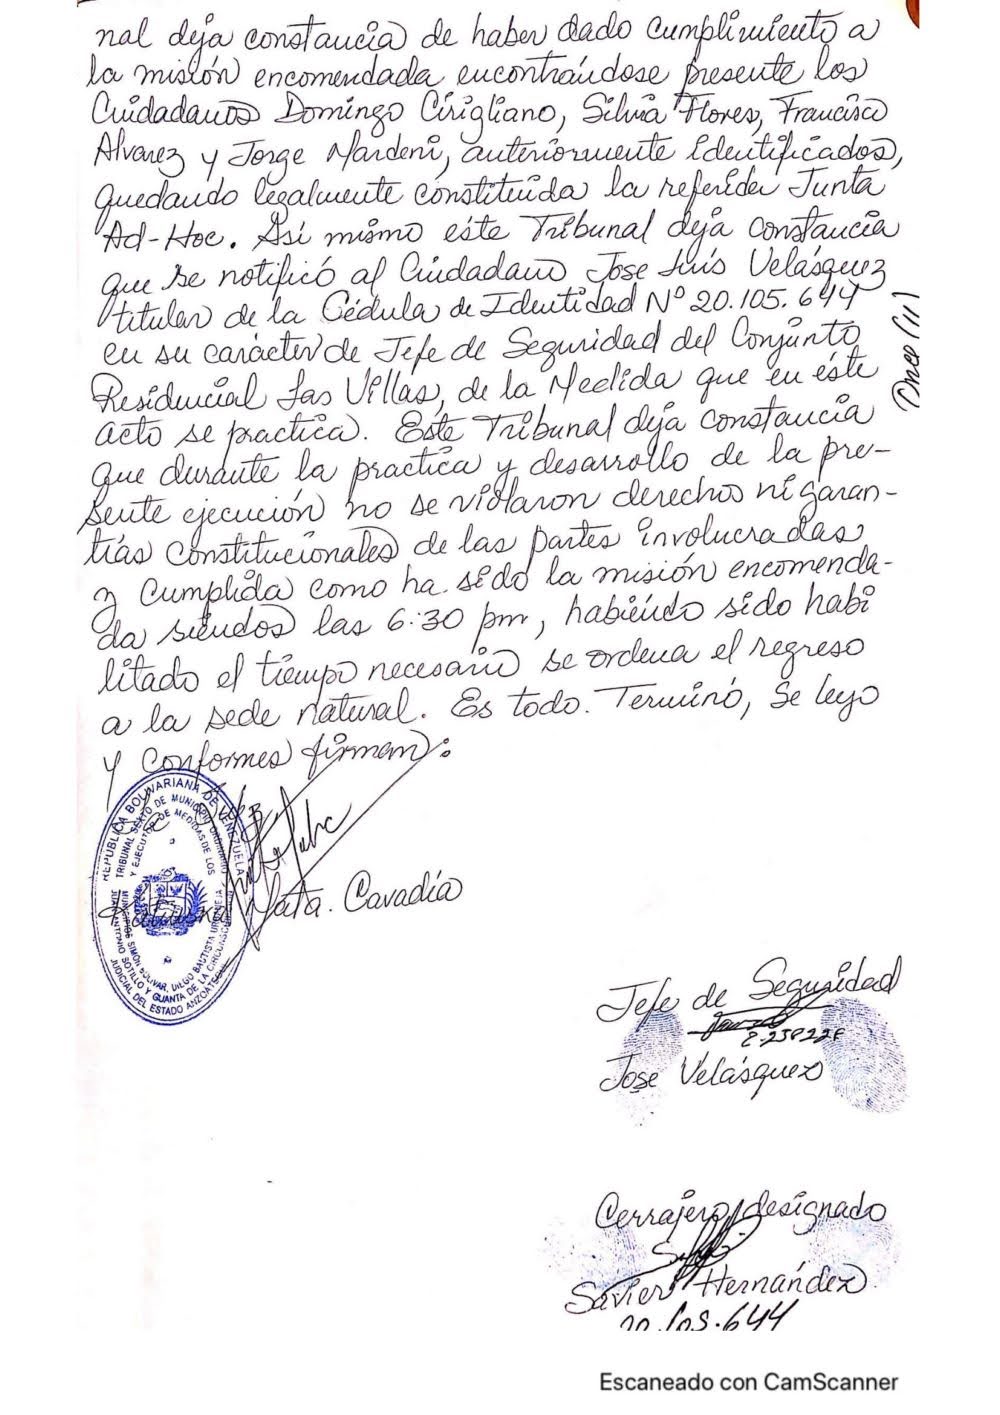 nal deja constancia de haber dado cumplimiento a
la misión encomendada encontrándose presente los
Ciudadanos Domingo Cirigliano, Silvia Flores, Francisco
Alvarez y Jorge Mardeni, anteriormente identificados,
quedando legalmente constituida la referida Junta
Ad-Hoc. Así mismo este Tribunal deja constancia
que se notificó al Ciudadano Jose Luis Velásquez
titular de la Cédula de Identidad Nº 20.105.644
en su carácter de Jefe de Seguridad del Conjunto
Residencial Las Villas, de la Medida que en éste
acto se practica. Este Tribunal deja constancia
que durante la practica y desarrollo de la pre-
sente ejecución no se violaron derechos ni garan-
tías Constitucionales de las partes involucradas
y Cumplida como ha sido la misión encomenda-
da siendos las 6:30 pm, habiendo sido habi
litado el tiempo necesario se ordena el regreso
a la sede natural. Es todo. Terminó, Se leyo
y Conformes firman:
Once (11)
REPÚBLICA BOLIVARIANA DE VENEZUELA
TRIBUNAL SEXTO DE MUNICIPIO ORDINARIO
Y EJECUTOR DE MEDIDAS DE LOS
MUNICIPIOS SIMON BOLIVAR, DIEGO BAUTISTA URBANEJA
JUAN ANTONIO SOTILLO Y GUANTA DE LA CIRCUNSCRIPCION
JUDICIAL DEL ESTADO ANZOATEGUI
Mata. Cavadía
Jefe de Seguridad
Jose Velásquez
Cerrajero designado
Savier Hernández
20.105.644
Escaneado con CamScanner